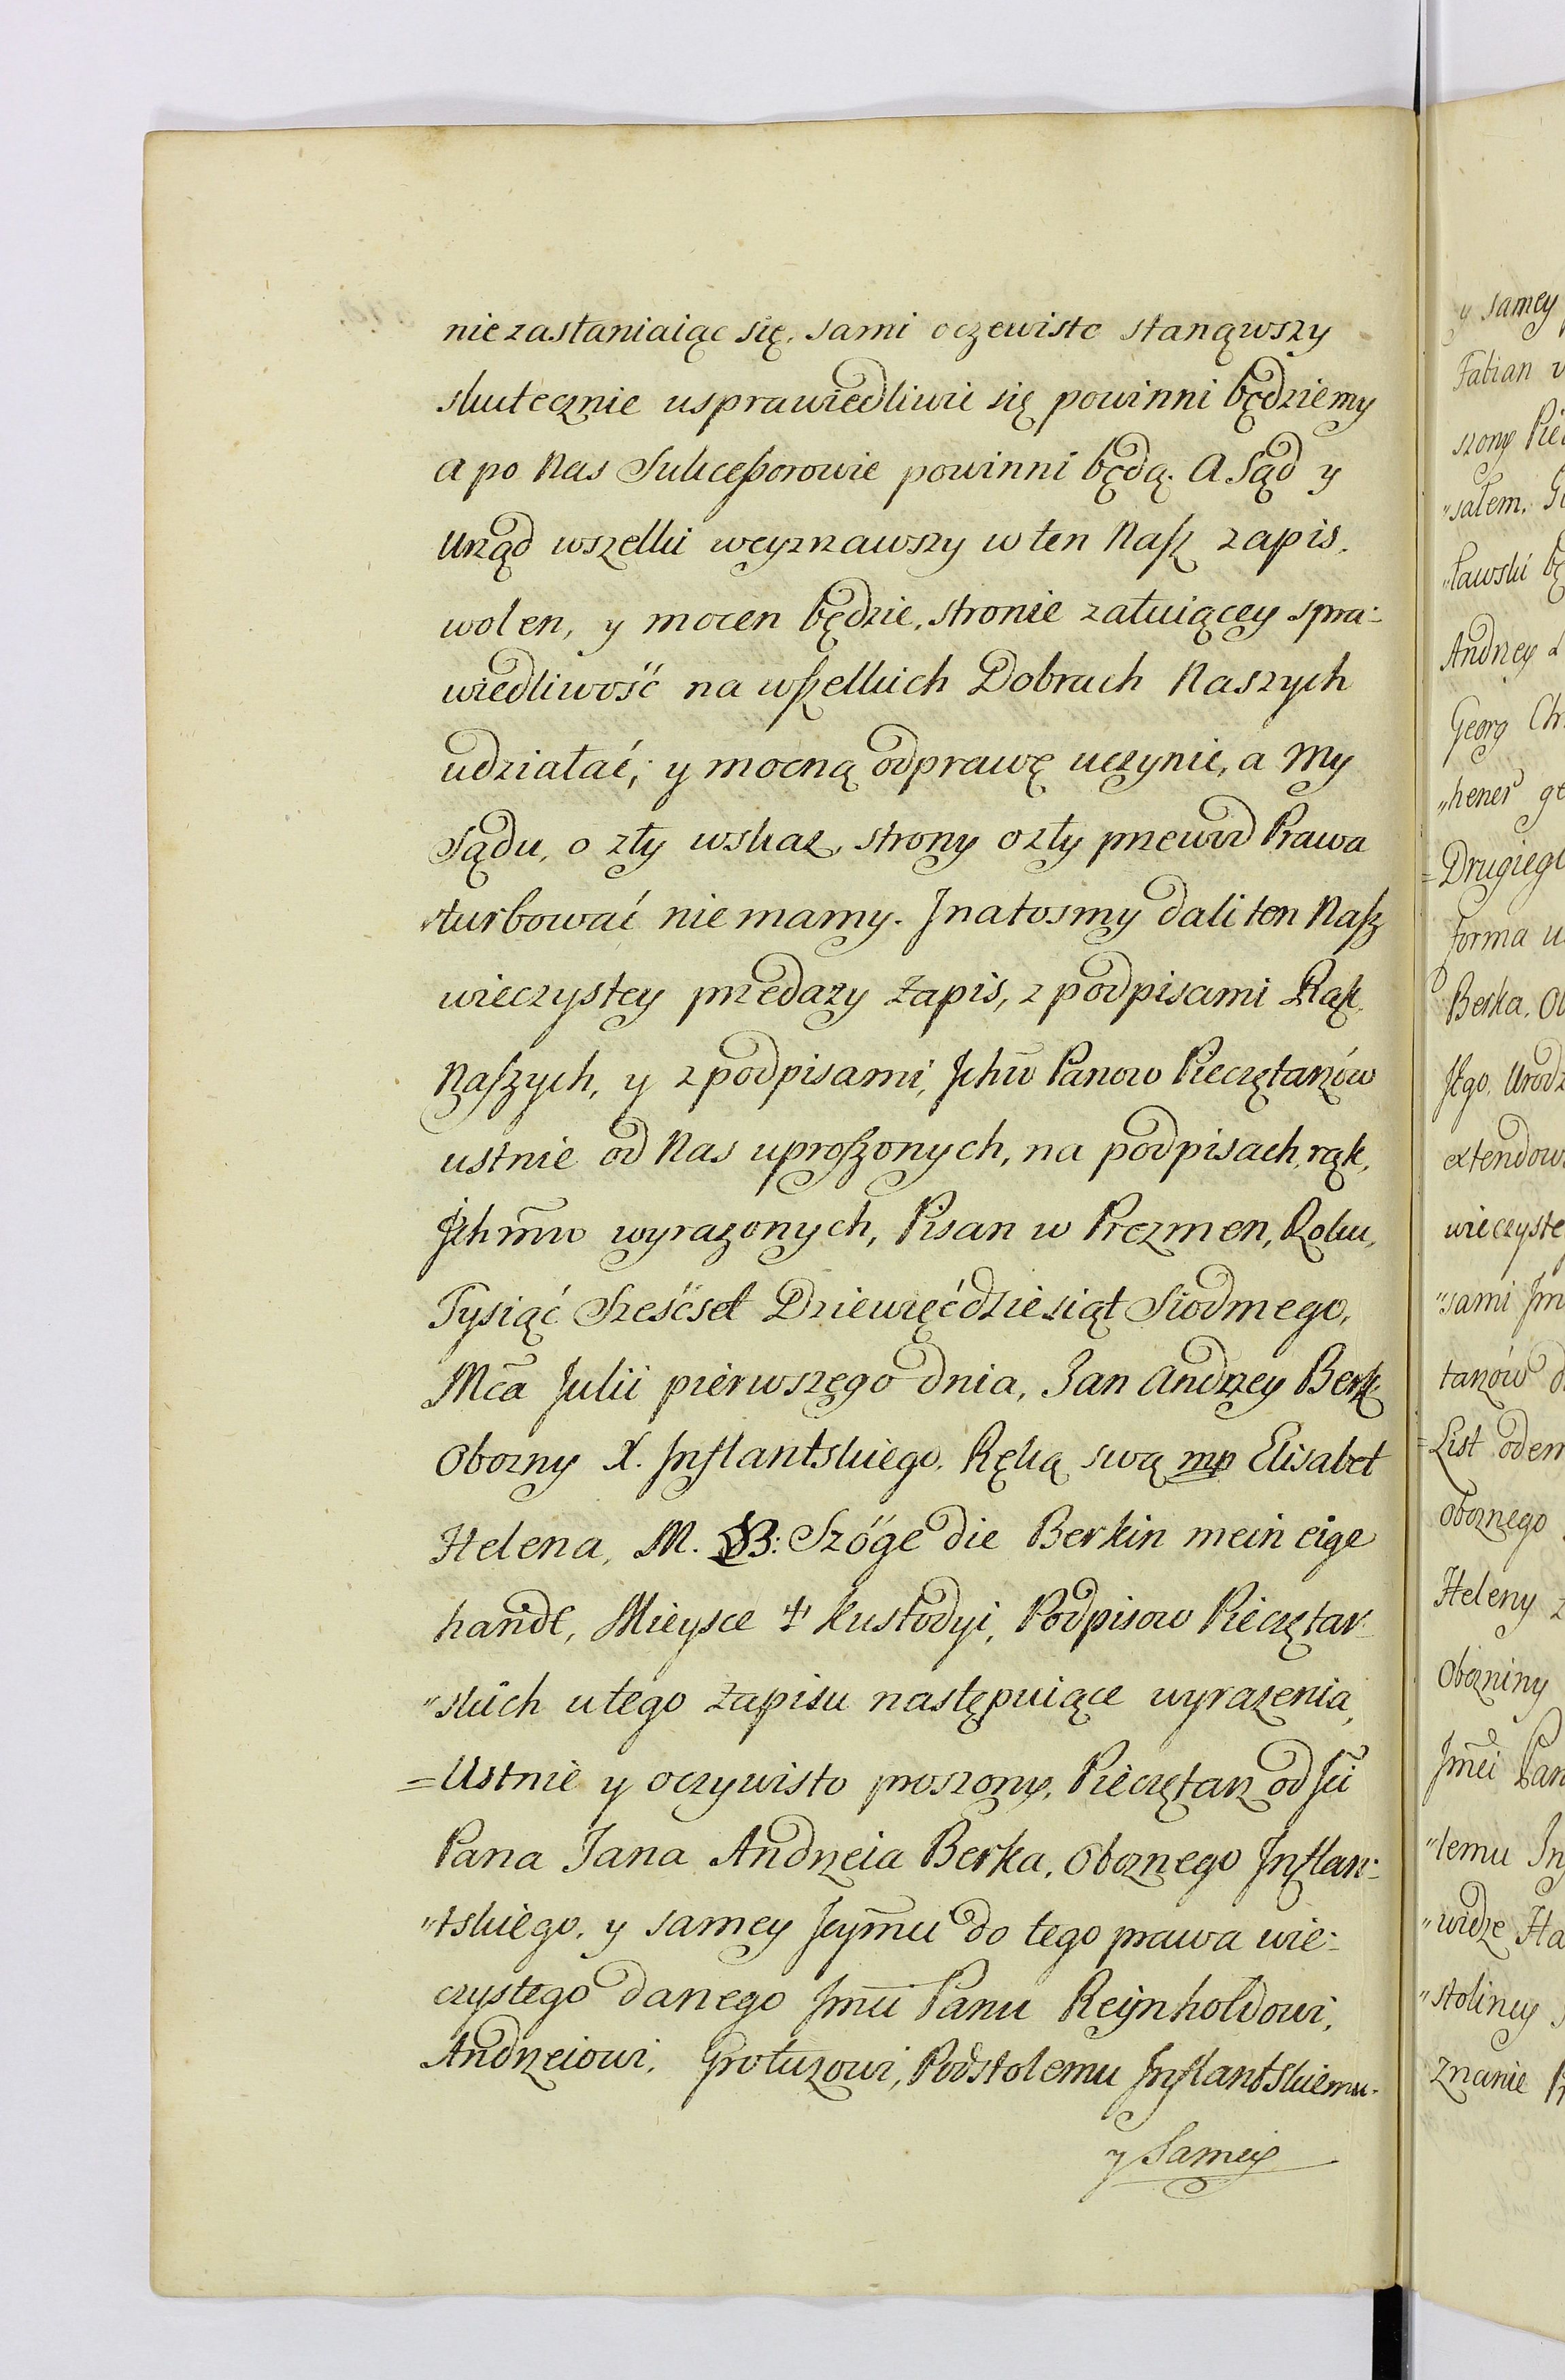 nie zasłaniaiąc się, sami oczewisto stanąwszy
skutecznie usprawiedliwic się powinni będziemy
a po Nas Sukceßorowie powinni będą. A Sąd y
Urząd wszelki weyznawszy w ten Nasz zapis.
wolen, y mocen będzie, stronie załuiącey spra-
wiedliwość na wszelkich Dobrach Naszych
udziałać, y mocną odprawę uczynic, a My
Sądu, o zły wskaz, strony o zły przewod Prawa
turbować nie mamy. J na tosmy dali ten Nasz
wieczystey przedazy Zapis, z podpisami Rąk
Naszych, y z podpisami, Jchm̃ Panow Pieczętarzów
ustnie od Nas uproszonych, na podpisach, rąk,
Jchm̃w wyrazonych, Pisan w Prezmen, Roku,
Tysiąć Sześćset Dziewięćdziesiąt Siodmego,
Mc̃a Julii pierwszego dnia, Jan Andrzey Berk
Obozny X. Inflantskiego. Ręką swą mp Elisabet
Helena, M. B: Szöge die Berkin mein eige
handt, Mieysce ☩ Kustodyi, Podpisow Pieczętar-
„skich u tego Zapisu następuiące wyrazenia,
=Ustnie y oczywisto proszony, Pieczętarz od Jc̃i
Pana Jana Andrzeia Berka, Oboznego Inflan-
„tskiego, y samey Jeym̃ci do tego prawa wie-
czystego danego Jm̃ci Panu Reÿnholdowi,
Andrzeiowi, Grotuzowi, Podstolemu Inflantskiemu.
y Samey
y samey
Fabian
szony
„sałem.
„ławski
Andrzey
Georg
„hener
=Drugiego
forma
Berka,
Jego,
extendow
wieczyste
„sami
tarzów
=List
oboznego
Heleny
Oboziny
Jm̃ci Pan
„lemu
„widze
„stolincy
znanie